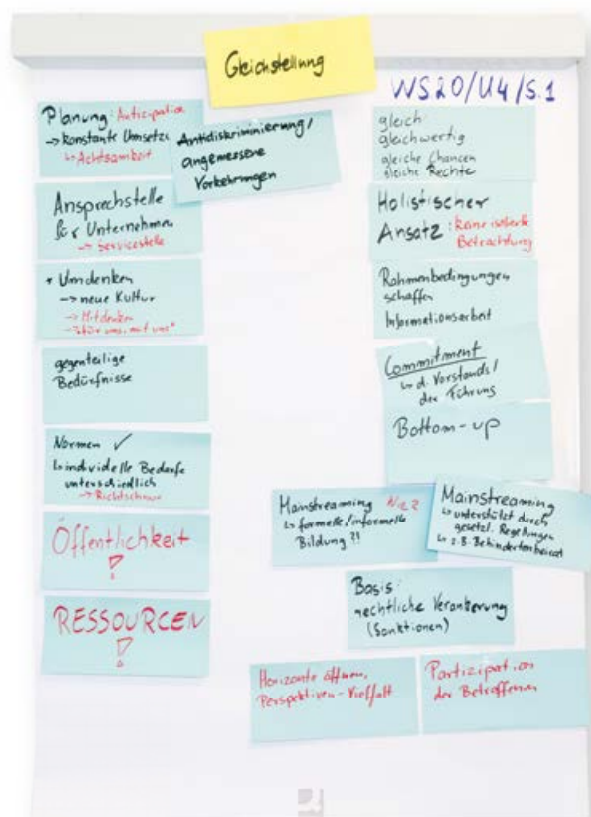 Gleichstellung
WS20/U4/S.1
Planung: Antizipation
→ konstante Umsetz.
↳ Achtsamkeit
Antidiskriminierung/
angemessene
Vorkehrungen
Ansprechstelle
für Unternehmen
→ Servicestelle
* Umdenken
→ neue Kultur
→ Mitdenken
→ "für uns, mit uns"
gegenteilige
Bedürfnisse
Normen ✓
↳ individuelle Bedarfe
unterschiedlich
→ Richtschnur
Öffentlichkeit
!
RESSOURCEN
!
gleich
gleichwertig
gleiche Chancen
gleiche Rechte
Holistischer
Ansatz: keine isolierte
Betrachtung
Rahmenbedingungen
schaffen
Informationsarbeit
Commitment
↳ d. Vorstands/
der Führung
Bottom-up
Mainstreaming
↳ formelle/informelle
Bildung?!
Mainstreaming
↳ unterstützt durch
gesetzl. Regelungen
↳ z.B. Behindertenbeirat
Basis:
rechtliche Verankerung
(Sanktionen)
Horizonte öffnen,
Perspektiven-Vielfalt
Partizipation
der Betroffenen